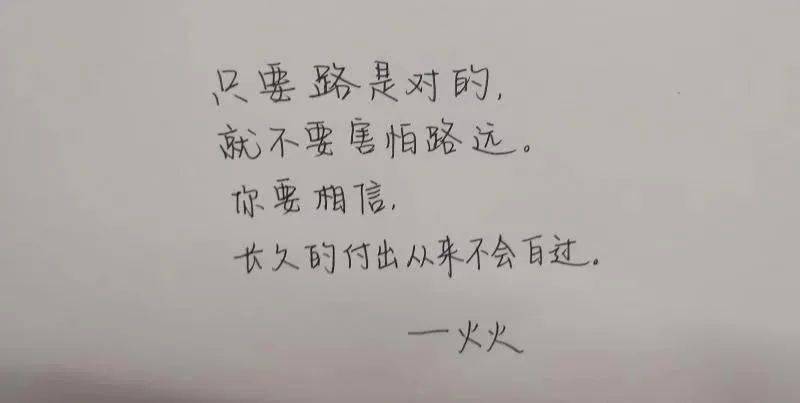 只要路是对的，
就不要害怕路远。
你要相信，
长久的付出从来不会百过。
—火火